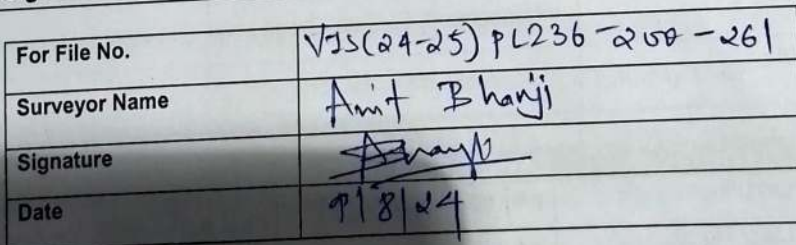 For File No. VIS(24-25) PL236-200-261
Surveyor Name Amit Bhanji
Signature
Date 9/8/24